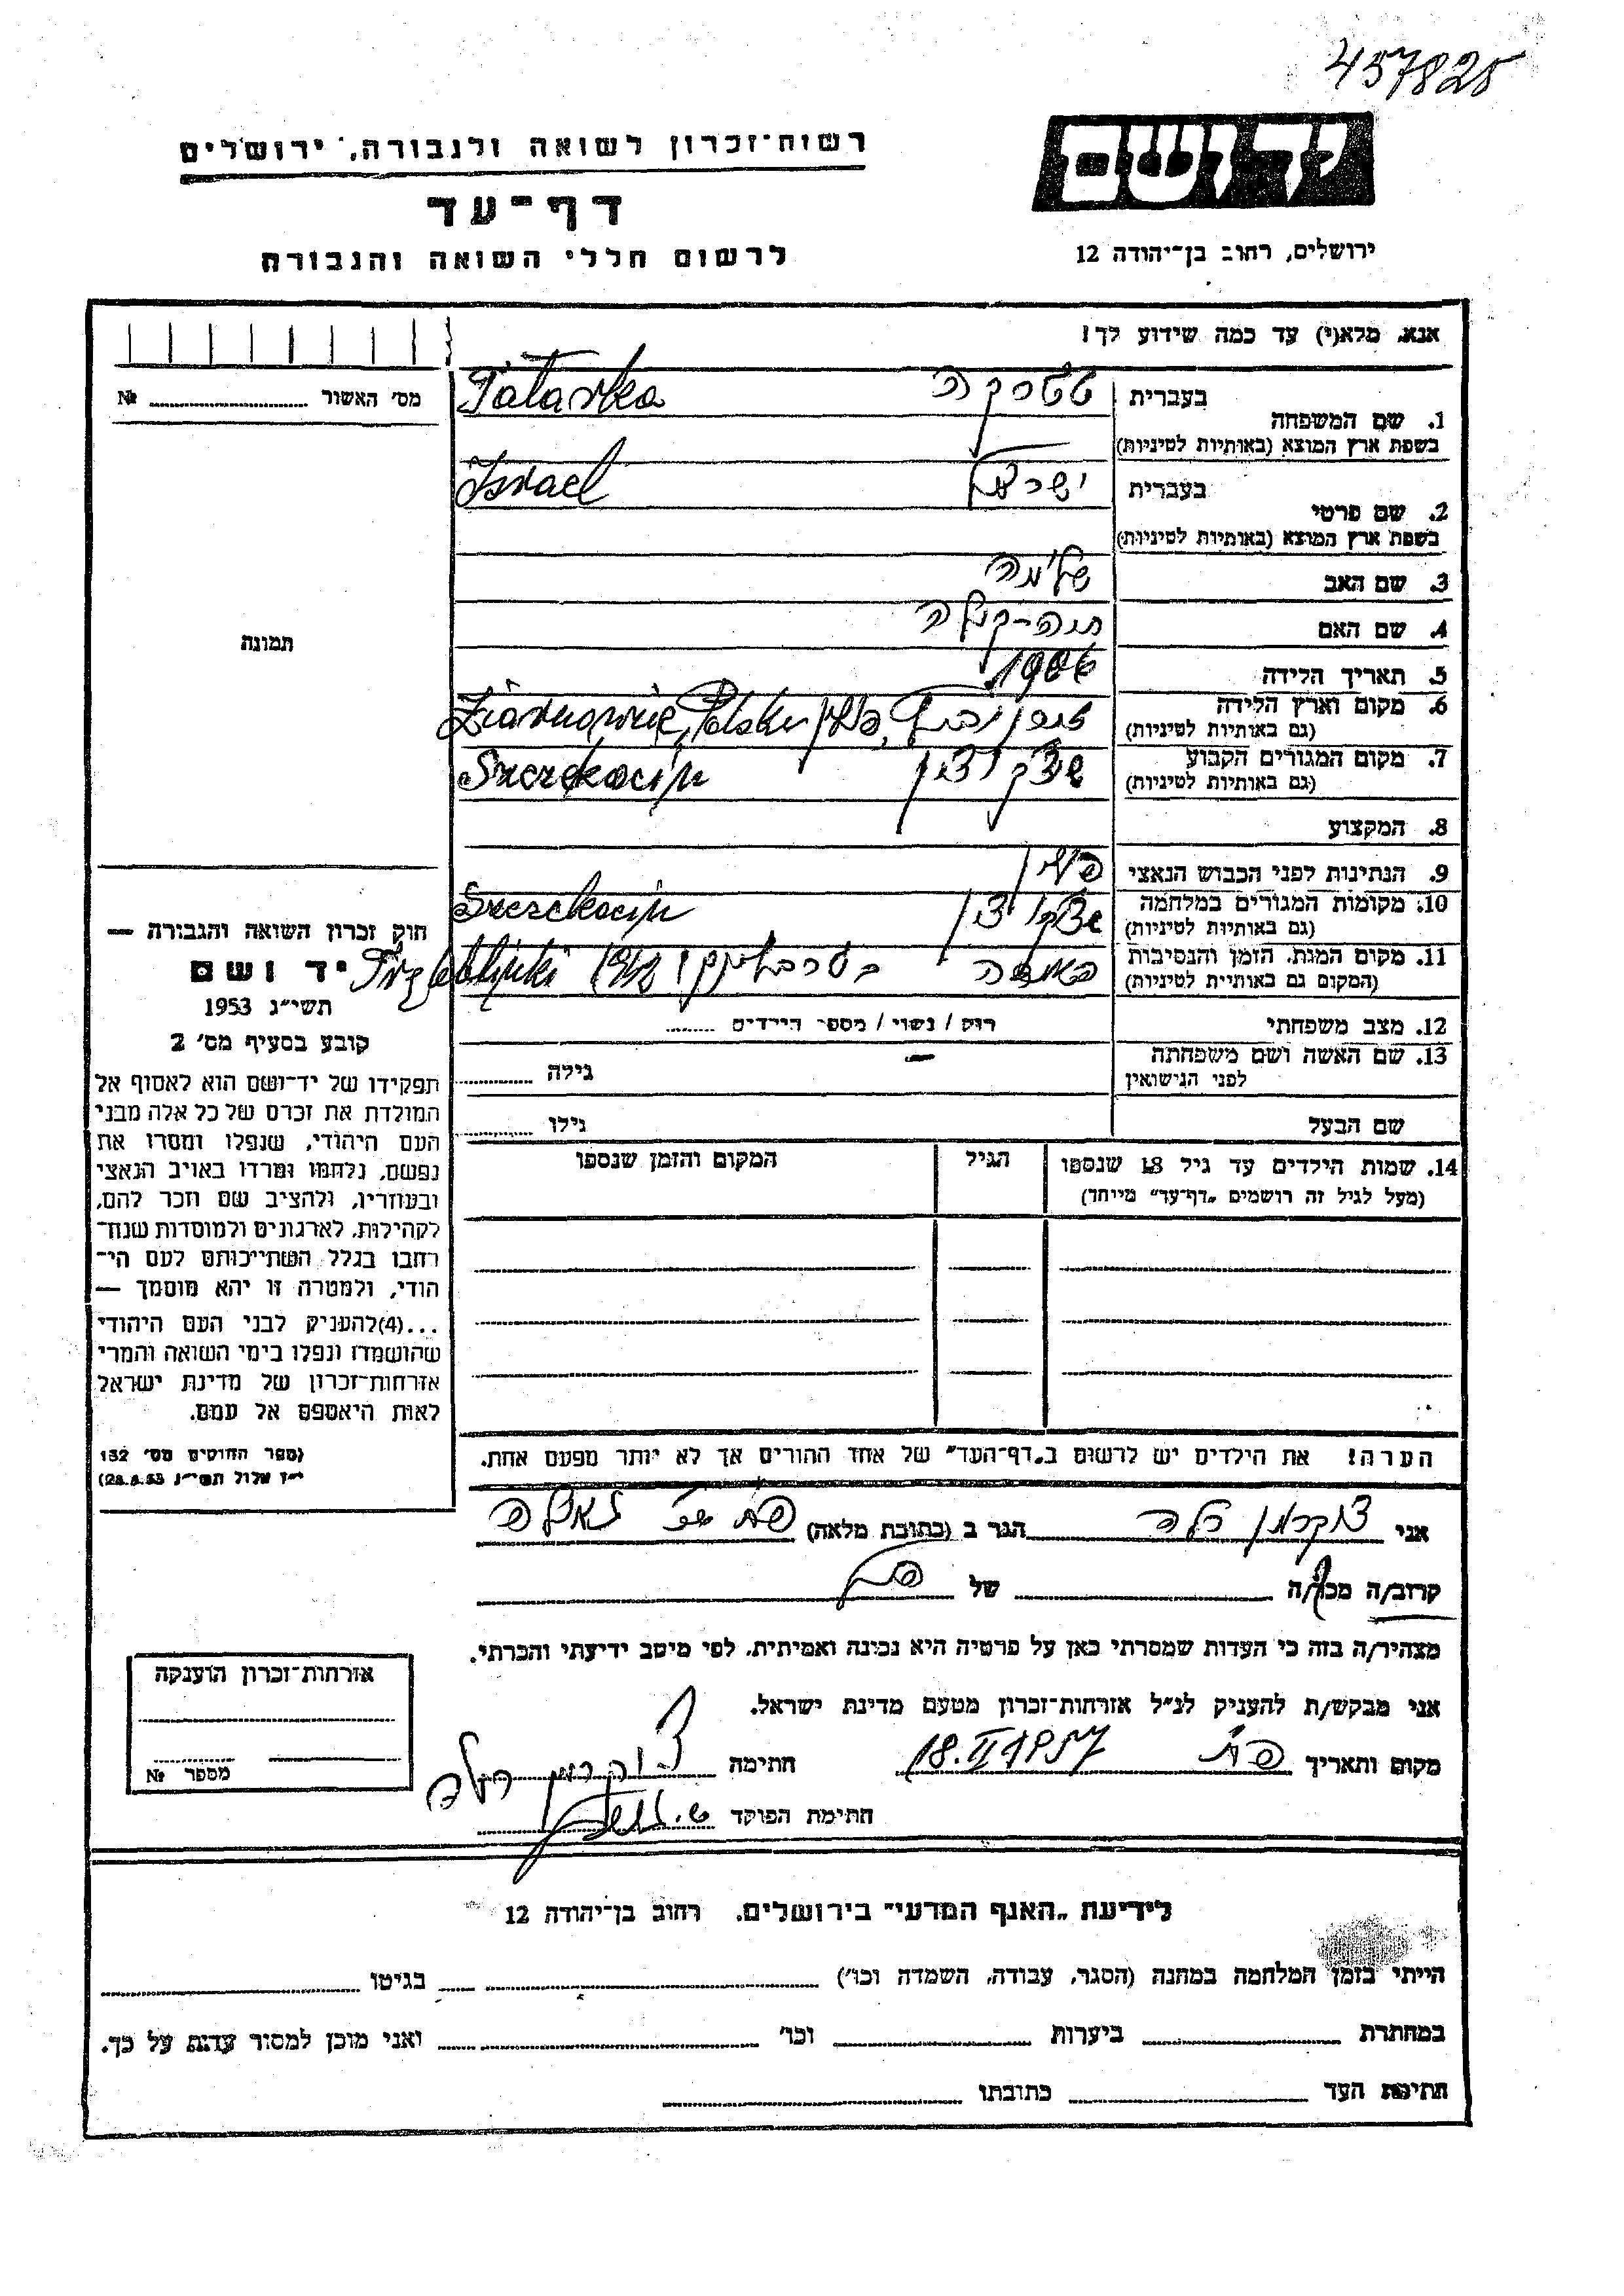 457825
רשות־זכרון לשואה ולגבורה, ירושלים
יד ושם
דף־עד
ירושלים, רחוב בן־יהודה 12
לרשום חללי השואה והגבורה
אנא, מלא(י) עד כמה שידוע לך!
מס' האשור №
תמונה
1. שם המשפחה בעברית טטרקה Tatarka
בשפת ארץ המוצא (באותיות לטיניות)
2. שם פרטי בעברית ישראל Israel
בשפת ארץ המוצא (באותיות לטיניות)
3. שם האב שלמה
4. שם האם
5. תאריך הלידה
6. מקום וארץ הלידה Polska פולין
(גם באותיות לטיניות)
7. מקום המגורים הקבוע Szczekociny
(גם באותיות לטיניות)
8. המקצוע
9. הנתינות לפני הכבוש הנאצי פולין
10. מקומות המגורים במלחמה Szczekociny
(גם באותיות לטיניות)
11. מקום המות, הזמן והנסיבות
(המקום גם באותיות לטיניות)
12. מצב משפחתי רווק / נשוי / מספר הילדים
13. שם האשה ושם משפחתה גילה
לפני הנישואין
שם הבעל גילו
14. שמות הילדים עד גיל 18 שנספו הגיל המקום והזמן שנספו
(מעל לגיל זה רושמים „דף־עד" מיוחד)
חוק זכרון השואה והגבורה —
יד ושם
תשי"ג 1953
קובע בסעיף מס' 2
תפקידו של יד־ושם הוא לאסוף אל
המולדת את זכרם של כל אלה מבני
העם היהודי, שנפלו ומסרו את
נפשם, נלחמו ומרדו באויב הנאצי
ובעוזריו, ולהציב שם וזכר להם,
לקהילות, לארגונים ולמוסדות שנח־
רבו בגלל השתייכותם לעם הי־
הודי, ולמטרה זו יהא מוסמך —
...(4)להעניק לבני העם היהודי
שהושמדו ונפלו בימי השואה והמרי
אזרחות־זכרון של מדינת ישראל
לאות היאספם אל עמם.
(ספר החוקים מס' 132
י"ז אלול תשי"ג 28.8.53)
הערה! את הילדים יש לרשום ב„דף־העד" של אחד ההורים אך לא יותר מפעם אחת.
אני צוקרמן הגר ב (כתובת מלאה)
קרוב/ה מכר/ה של
מצהיר/ה בזה כי העדות שמסרתי כאן על פרטיה היא נכונה ואמיתית, לפי מיטב ידיעתי והכרתי.
אני מבקש/ת להעניק לנ"ל אזרחות־זכרון מטעם מדינת ישראל.
מקום ותאריך 18.II 1957 חתימה צוקרמן
חתימת הפוקד
אזרחות־זכרון הוענקה
מספר №
לידיעת „האגף המדעי" בירושלים, רחוב בן־יהודה 12
הייתי בזמן המלחמה במחנה (הסגר, עבודה, השמדה וכו') בגיטו
במחתרת ביערות וכו' ואני מוכן למסור עדות על כך.
חתימת העד כתובתו